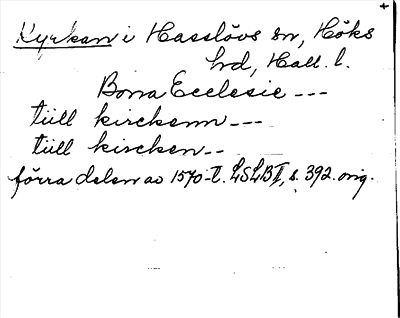 +
Kyrkan i Hasslövs sn, Höks
hd, Hall. l.
Bona Ecclesie ---
tüll kirckenn ---
tüll kircken --
förra delen av 1570-t. LSLBII, s. 392. orig.